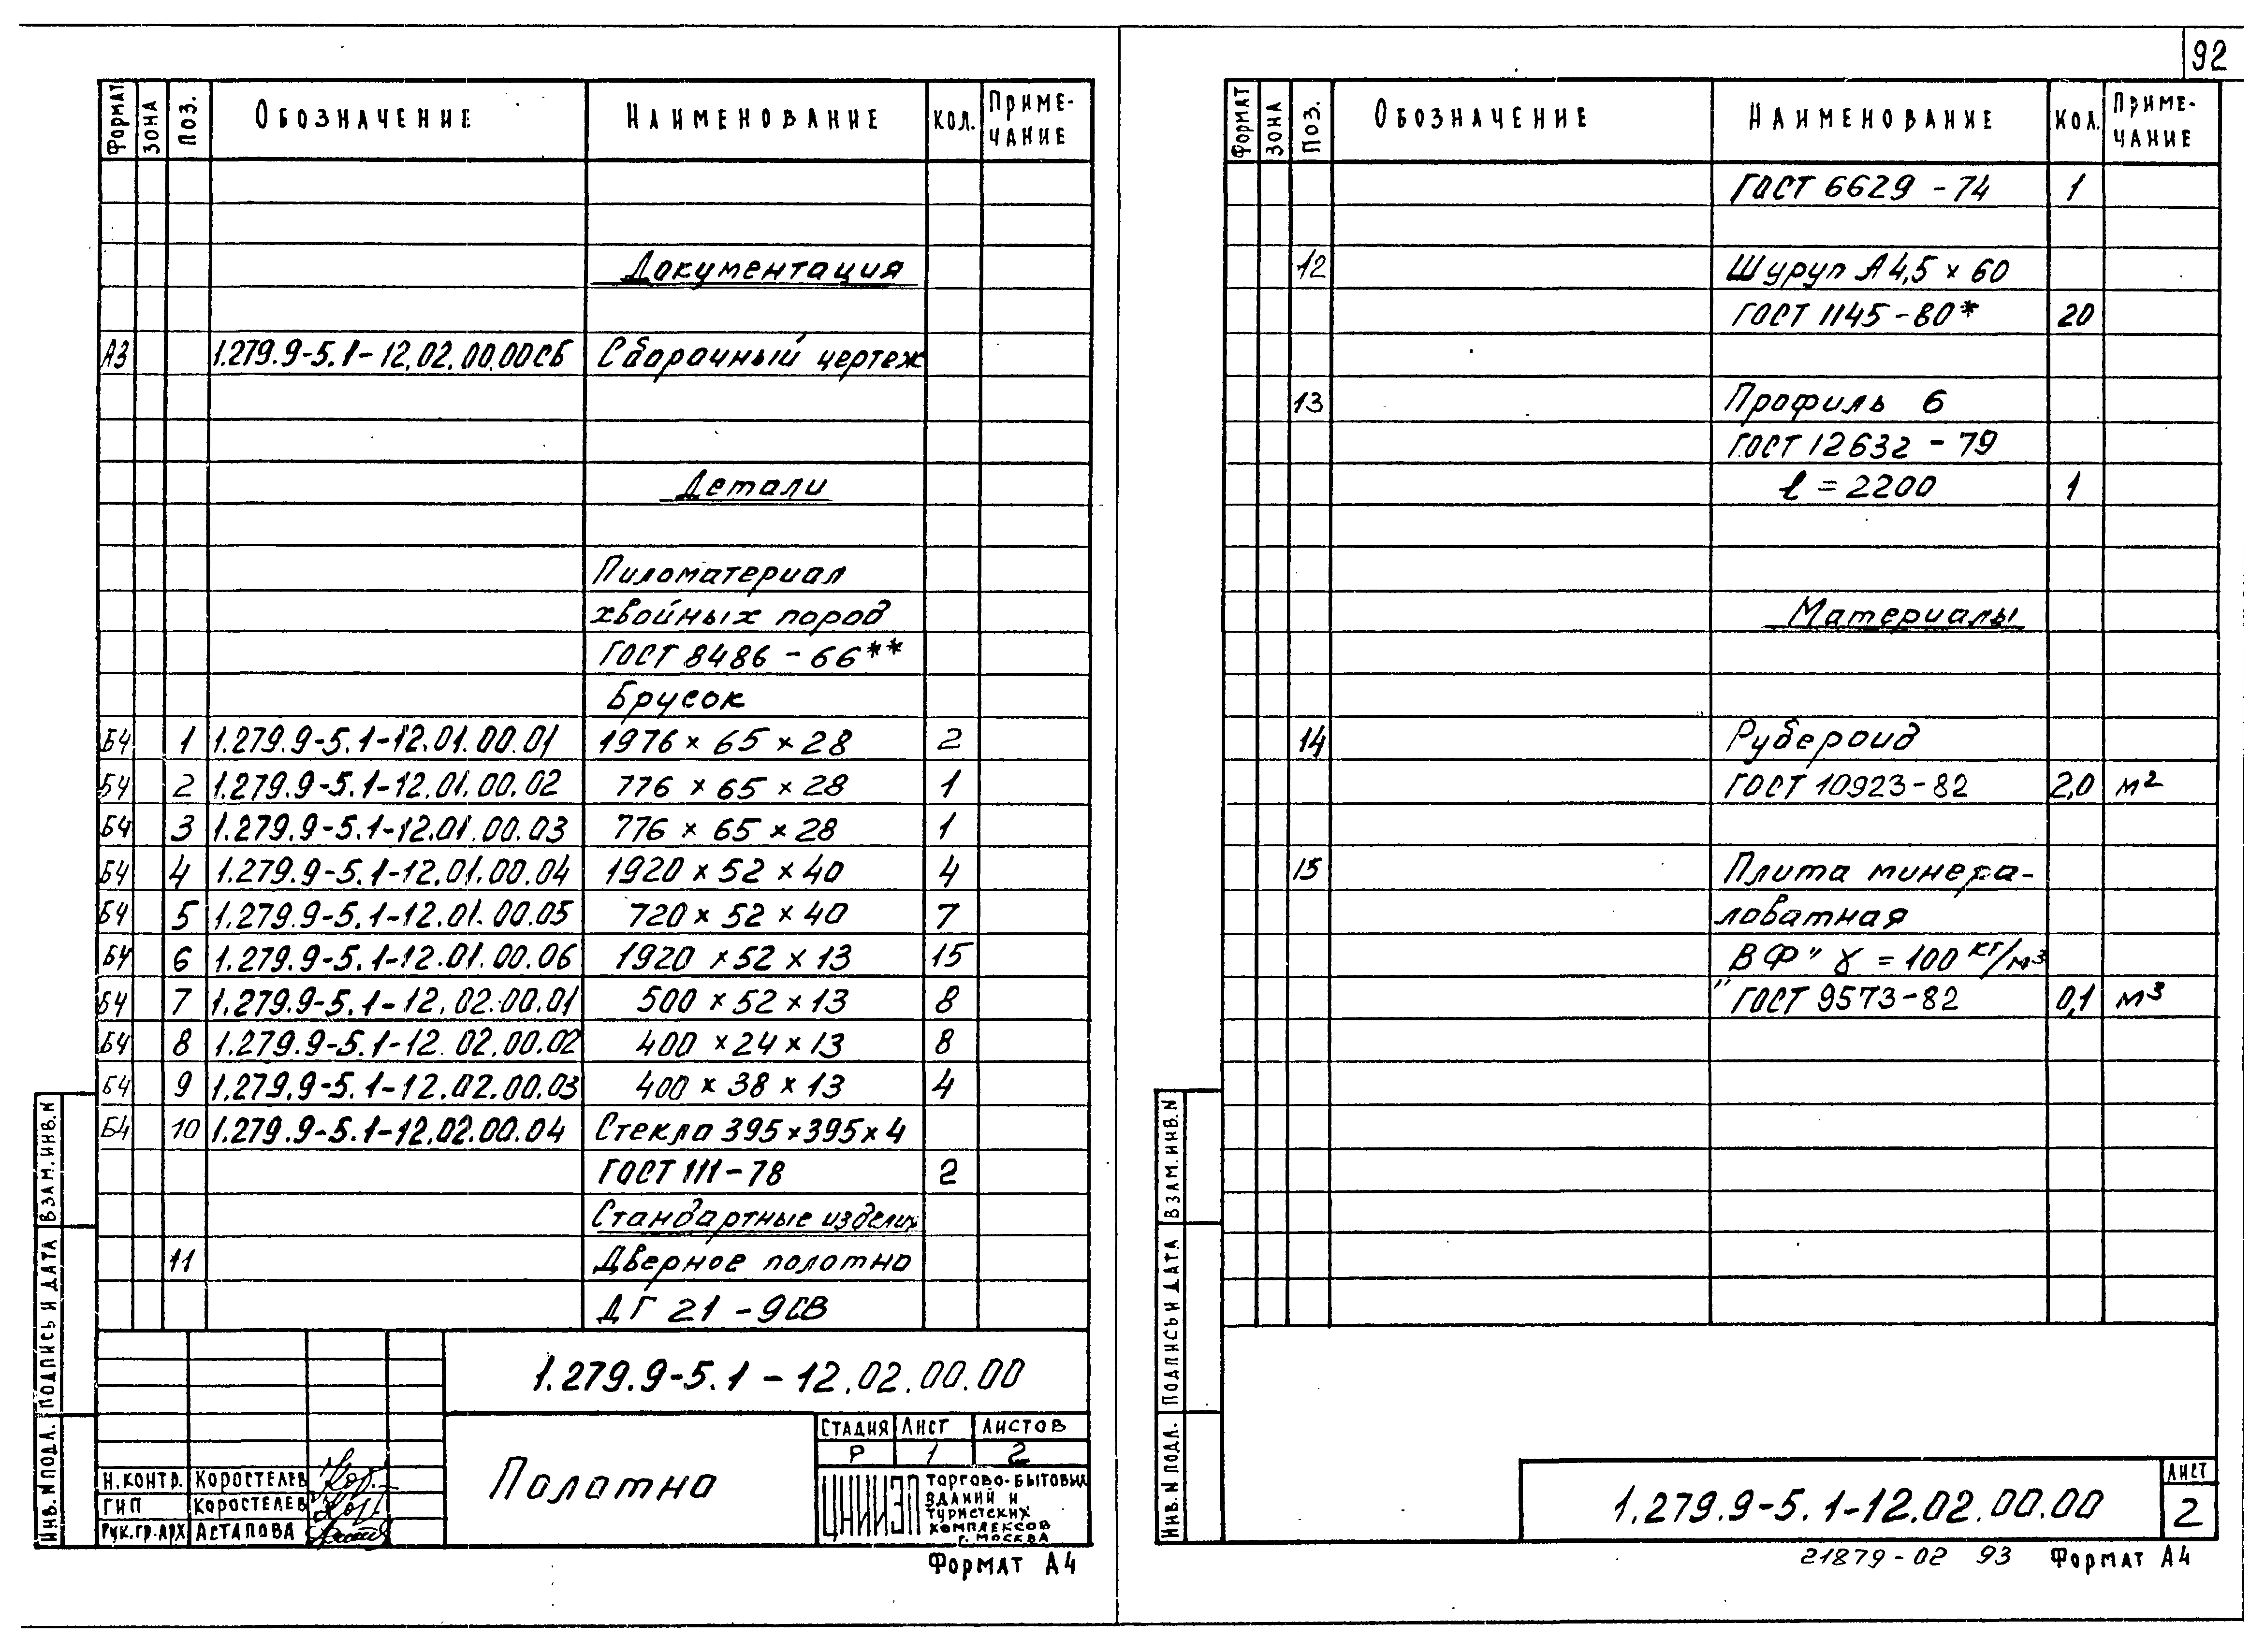 92
Формат Зона Поз. Обозначение Наименование Кол. Приме-
чание
Документация
А3 1.279.9-5.1-12.02.00.00СБ Сборочный чертеж
Детали
Пиломатериал
хвойных пород
ГОСТ 8486-66**
Брусок
Б4 1 1.279.9-5.1-12.01.00.01 1976×65×28 2
Б4 2 1.279.9-5.1-12.01.00.02 776×65×28 1
Б4 3 1.279.9-5.1-12.01.00.03 776×65×28 1
Б4 4 1.279.9-5.1-12.01.00.04 1920×52×40 4
Б4 5 1.279.9-5.1-12.01.00.05 720×52×40 7
Б4 6 1.279.9-5.1-12.01.00.06 1920×52×13 15
Б4 7 1.279.9-5.1-12.02.00.01 500×52×13 8
Б4 8 1.279.9-5.1-12.02.00.02 400×24×13 8
Б4 9 1.279.9-5.1-12.02.00.03 400×38×13 4
Б4 10 1.279.9-5.1-12.02.00.04 Стекло 395×395×4
ГОСТ 111-78 2
Стандартные изделия
11 Дверное полотно
ДГ 21-9СВ
1.279.9-5.1-12.02.00.00
Полотно
Стадия Лист Листов
Р 1 2
Н.контр. Коростелев
ГИП Коростелев
Рук.гр.арх Астапова
ЦНИИЭП торгово-бытовых
зданий и
туристских
комплексов
г. Москва
Инв.N подл. Подпись и дата Взам.инв.N
Формат А4
Формат Зона Поз. Обозначение Наименование Кол. Приме-
чание
ГОСТ 6629-74 1
12 Шуруп А4,5×60
ГОСТ 1145-80* 20
13 Профиль 6
ГОСТ 12632-79
ℓ=2200 1
Материалы
14 Рубероид
ГОСТ 10923-82 2,0 м²
15 Плита минера-
ловатная
„ВФ" γ=100 кг/м³
ГОСТ 9573-82 0,1 м³
Инв.N подл. Подпись и дата Взам.инв.N
1.279.9-5.1-12.02.00.00
Лист
2
21879-02 93 Формат А4